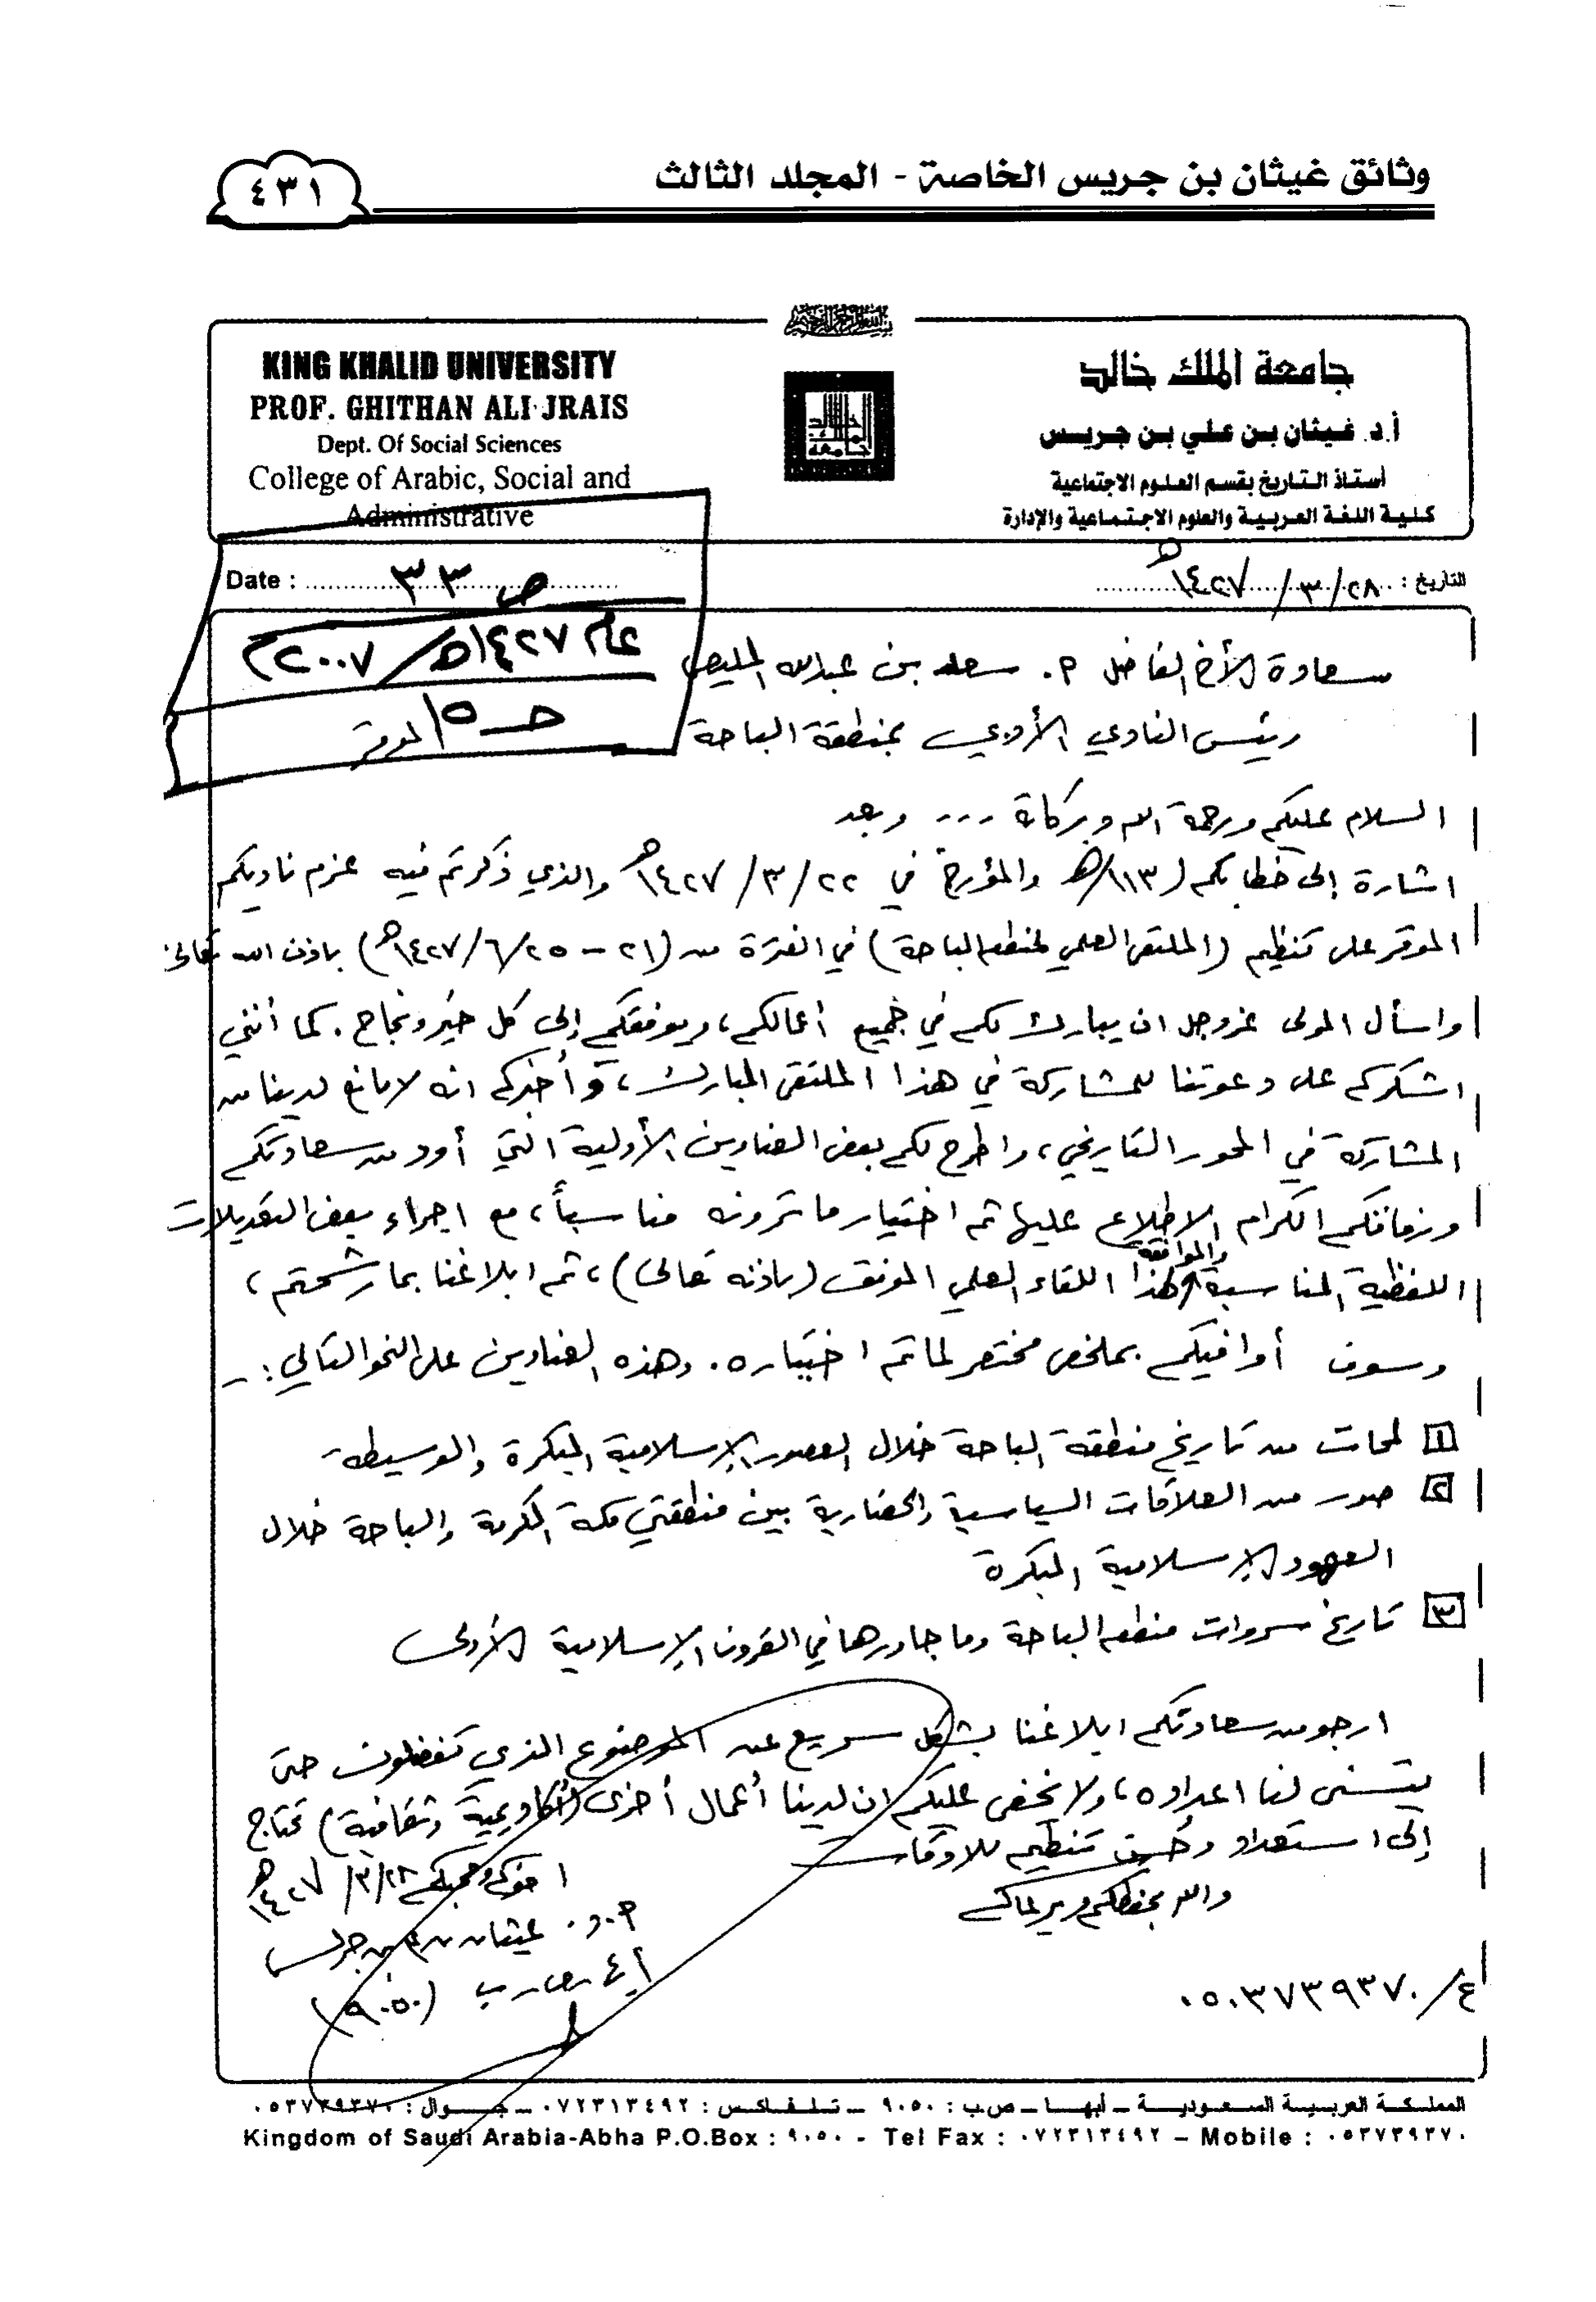 وثائق غيثان بن جريس الخاصة - المجلد الثالث
٤٣١
KING KHALID UNIVERSITY
PROF. GHITHAN ALI JRAIS
Dept. Of Social Sciences
College of Arabic, Social and
Administrative
جامعة الملك خالد
أ.د. غيثان بن علي بن جريس
أستاذ التاريخ بقسم العلوم الاجتماعية
كلية اللغة العربية والعلوم الاجتماعية والإدارة
التاريخ : ٢٨/٣/١٤٢٧هـ
Date :
ص ٣٣
عام ١٤٢٧هـ/٢٠٠٧م
حـ ١٥
سعادة الأخ الفاضل أ. سعد بن عبدالله المليص
رئيس النادي الأدبي بمنطقة الباحة الموقر
السلام عليكم ورحمة الله وبركاته --- وبعد
اشارة إلى خطابكم (١١٣/هـ والمؤرخ في ٢٢/٣/١٤٢٧هـ والذي ذكرتم فيه عزم ناديكم
الموقر على تنظيم (الملتقى العلمي لمنطقة الباحة) في الفترة من (٢١ - ٢٥/٦/١٤٢٧هـ) باذن الله تعالى
واسأل المولى عزوجل ان يبارك لكم في جميع أعمالكم، ويوفقكم إلى كل خير ونجاح. كما أنني
اشكركم على دعوتنا للمشاركة في هذا الملتقى المبارك، وأخبركم انه لامانع لدينا من
المشاركة في المحور التاريخي، واطرح لكم بعض العناوين الأولية التي أود من سعادتكم
وزملائكم الكرام الاطلاع عليها ثم اختيار ما ترونه مناسباً، مع اجراء بعض التعديلات
اللفظية المناسبة والموافقة لهذا اللقاء العلمي الموفق (باذنه تعالى)، ثم ابلاغنا بما رشحتم،
وسوف أوافيكم بملخص مختصر لما تم اختياره. وهذه العناوين على النحو التالي: -
١ لمحات من تاريخ منطقة الباحة خلال العصور الإسلامية المبكرة والوسيطة
٢ صور من العلاقات السياسية والحضارية بين منطقتي مكة المكرمة والباحة خلال
العهود الإسلامية المبكرة
٣ تاريخ سروات منطقة الباحة وما جاورها في القرون الإسلامية الأولى
ارجو من سعادتكم ابلاغنا بشكل سريع عن الموضوع الذي تفضلون حتى
يتسنى لنا اعداده، ولا يخفى عليكم ان لدينا أعمال أخرى (أكاديمية وثقافية) تحتاج
إلى استعداد وحسن تنظيم للاوقات
والله يحفظكم ويرعاكم
اخوكم ومحبكم ٢٨/٣/١٤٢٧هـ
أ.د. غيثان بن علي بن جريس
أبها ص.ب (٩٠٥٠)
ج/٠٥٠٣٧٣٩٣٧٠
المملكة العربية السعودية – أبها – ص.ب : ٩٠٥٠ – تلفاكس : ٠٧٢٣١٣٤٩٢ – جوال : ٠٥٣٧٣٩٣٧٠
Kingdom of Saudi Arabia-Abha P.O.Box : ٩٠٥٠ - Tel Fax : ٠٧٢٣١٣٤٩٢ – Mobile : ٠٥٣٧٣٩٣٧٠